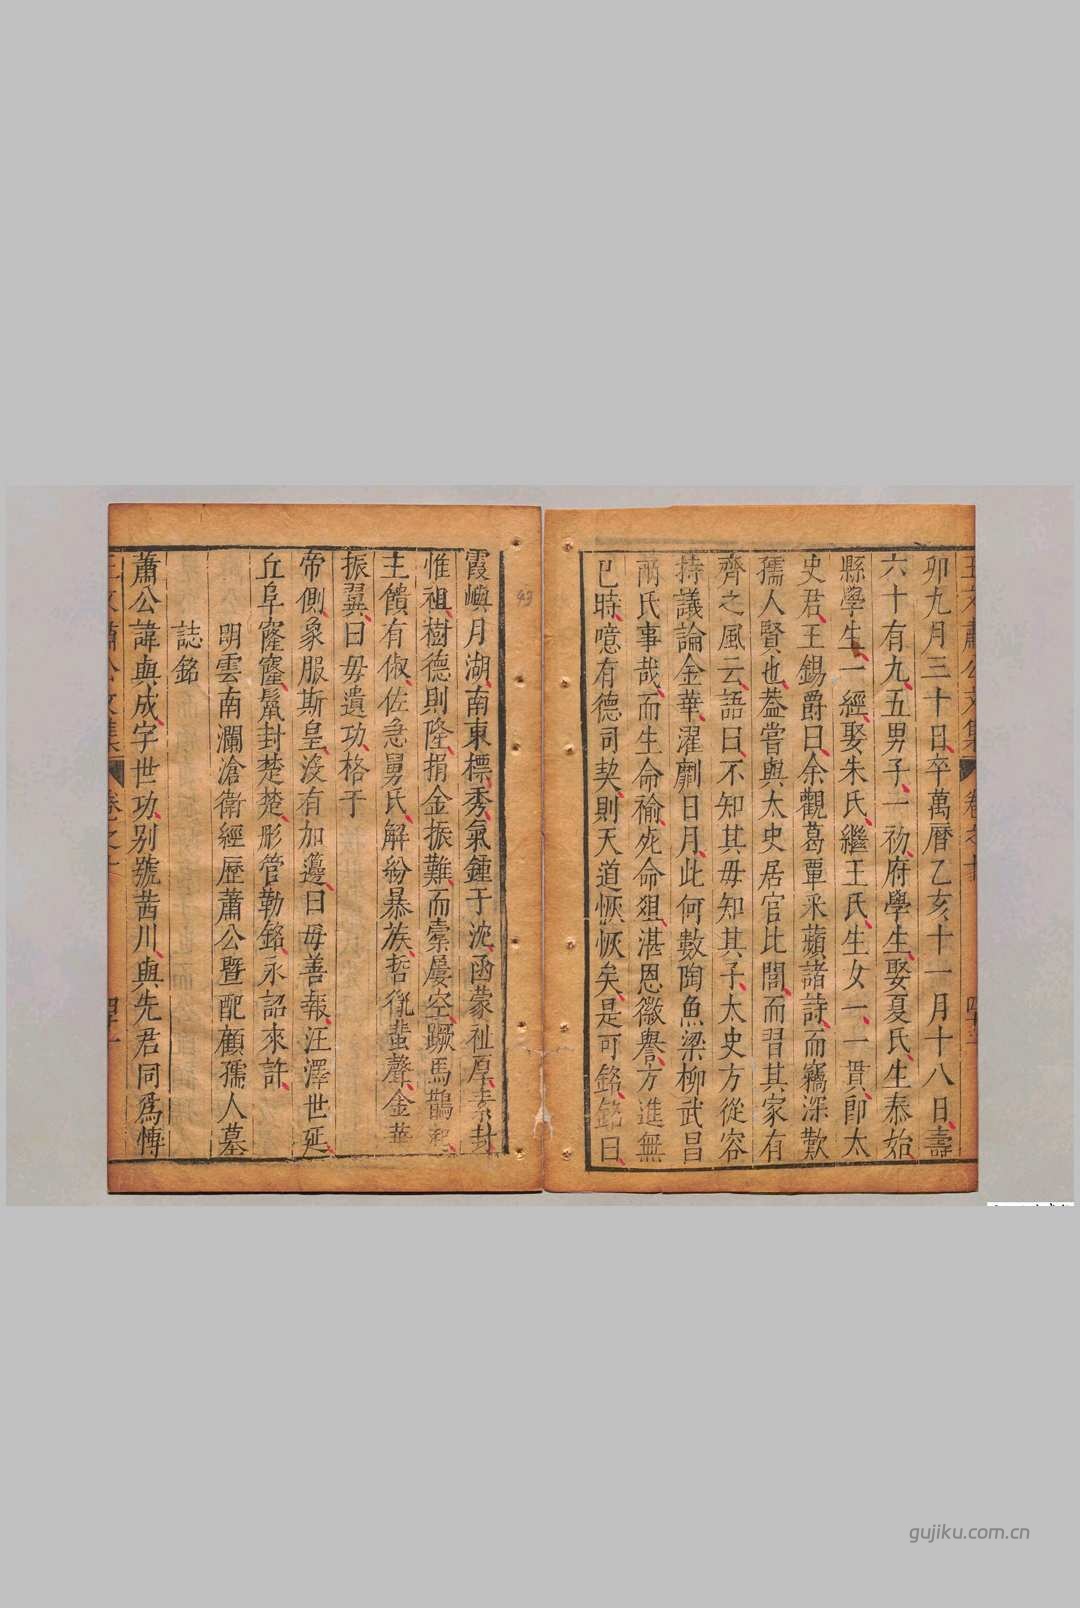 卯九月三十日卒萬曆乙亥十一月十八日壽
六十有九五男子一初府學生娶夏氏生泰始
縣學生一經娶朱氏繼王氏生女一一貫即太
史君王錫爵曰余觀葛覃采蘋諸詩而竊深歎
孺人賢也葢嘗與太史居官比閭而習其家有
齊之風云語曰不知其毋知其子太史方從容
持議論金華濯劘日月此何數陶魚梁柳武昌
兩氏事哉而生命褕死命俎湛恩徽譽方進無
已時噫有德司契則天道恢恢矣是可銘銘曰
霞嶼月湖南東標秀氣鍾于沈函蒙祉厚素封
惟祖樹德則隆捐金振難而橐屢空蹶馬鵲
主饋有俶佐急舅氏解紛暴族哲胤蜚聲金華
振翼曰毋遺功格于
帝側象服斯皇沒有加邊曰毋善報汪澤世延
丘阜窿窿鬣封楚楚彤管勒銘永詔來許
明雲南瀾滄衛經歷蕭公暨配顧孺人墓
誌銘
蕭公諱與成字世功別號茜川與先君同爲慱